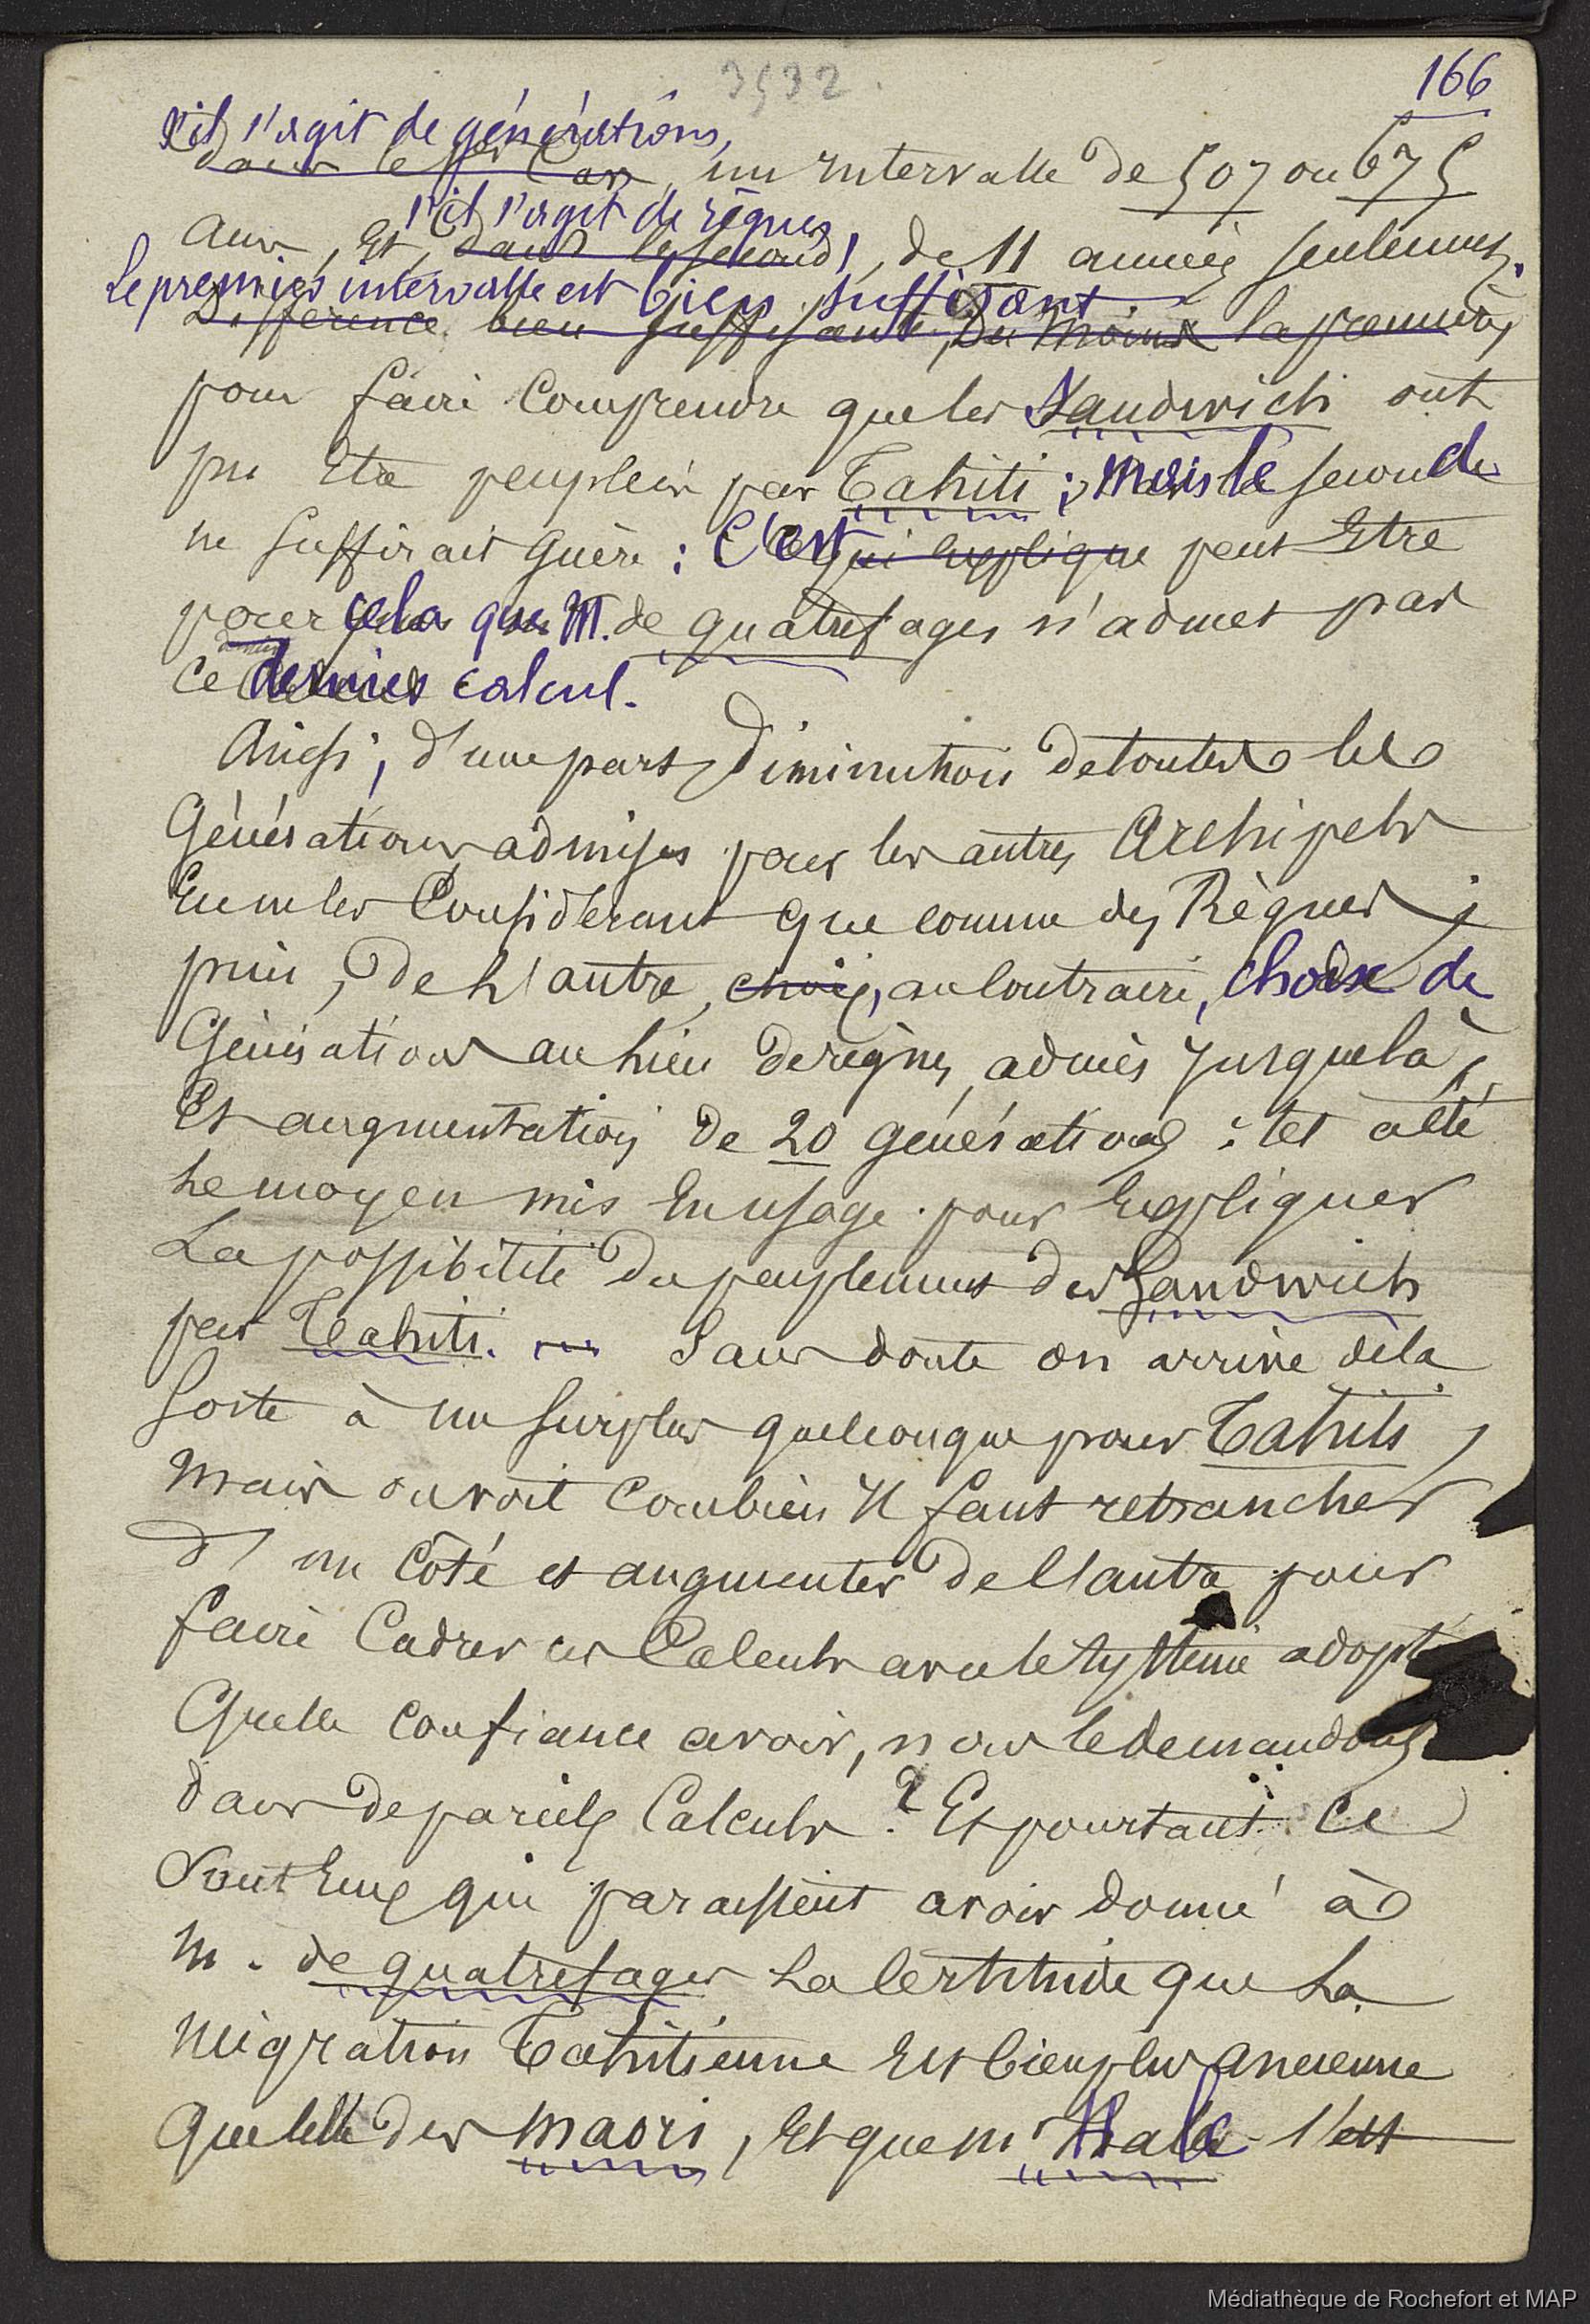 3532.
166
s'il s'agit de générations,
dans le 1er Cas, un intervalle de 507 ou 675
s'il s'agit de règnes,
ans, Et, dans le second, de 11 années seulement.
Le premier intervalle est bien suffisant
Différence bien suffisante, du moins la première,
pour faire Comprendre que les Sandwich ont
pu Etre peuplées par Tahiti ; mais le second
ne suffirait guère : C'est Ce qui explique peut Etre
pour cela que M. de quatrefages n'admet pas
ce dernier calcul.
Ainsi, d'une part, Diminution de toutes les
Générations admises pour les autres Archipels
En ne les Considérant que comme des Règnes ;
puis, De l'autre, choix, au Contraire, choix de
Générations au lieu de règnes, admis jusque là,
Et augmentation de 20 générations : tel a été
le moyen mis En usage pour Expliquer
La possibilité du peuplement des Sandwich
par Tahiti. — Sans doute on arrive de la
Sorte à un surplus quelconque pour Tahiti,
Mais on voit Combien Il faut retrancher
d'un Côté et augmenter De l'autre pour
faire Cadrer ces Calculs avec le système adopté
Quelle Confiance avoir, nous le demandons,
dans de pareils Calculs ? Et pourtant Ce
Sont Eux qui paraissent avoir donné à
M. de quatrefages La Certitude que La
migration Tahitienne Est bien plus ancienne
que celle des Maori, Et que M. Hale s'est
Médiathèque de Rochefort et MAP